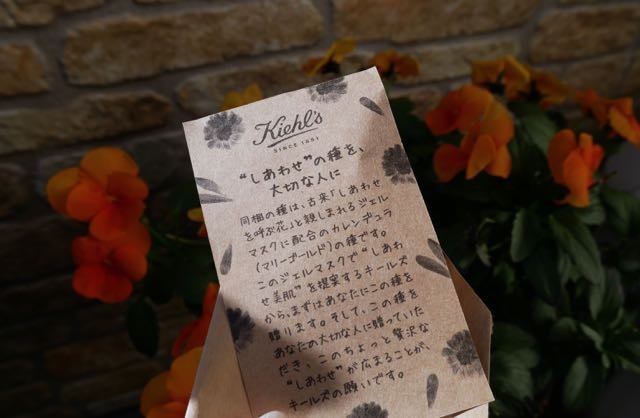 Kiehl's
SINCE 1851
“しあわせ”の種を、
大切な人に
同梱の種は、古来「しあわせ
を呼ぶ花」と親しまれるジェル
マスクに配合のカレンデュラ
(マリーゴールド)の種です。
このジェルマスクで“しあわ
せ美肌”を提案するキールズ
から、まずはあなたにこの種を
贈ります。そして、この種を
あなたの大切な人に贈っていた
だき、このちょっと贅沢な
“しあわせ”が広まることが、
キールズの願いです。